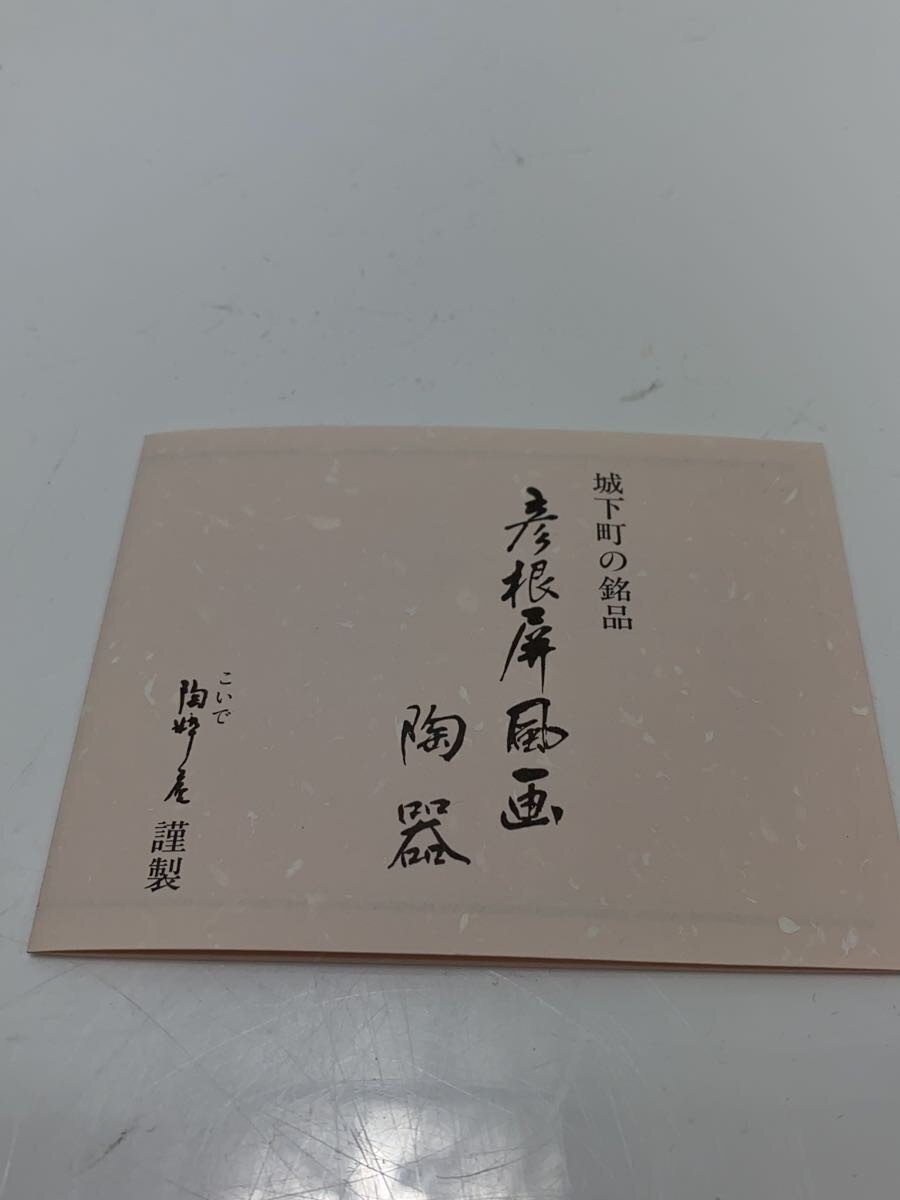 城下町の銘品
彦根屏風画
陶器
こいで
陶粋屋
謹製